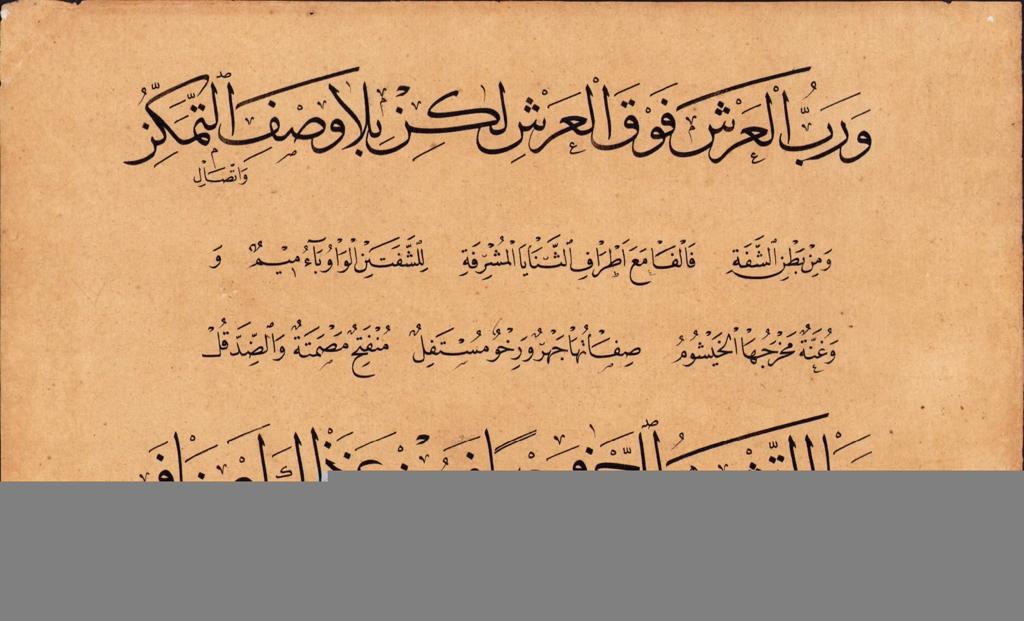 وَرَبُّ الْعَرْشِ فَوْقَ الْعَرْشِ لٰكِنْ بِلَا وَصْفِ التَّمَكُّنِ
وَاتِّصَالِ
وَمِنْ بَطْنِ الشَّفَةِ فَالْفَا مَعَ اَطْرَافِ الثَّنَايَا الْمُشْرِفَةِ لِلشَّفَتَيْنِ الْوَاوُ بَاءٌ مِيْمٌ وَ
وَغُنَّةٌ مَخْرَجُهَا الْخَيْشُومُ صِفَاتُهَا جَهْرٌ وَرِخْوٌ مُسْتَفِلْ مُنْفَتِحٌ مُصْمَتَةٌ وَالضِّدَّ قُلْ